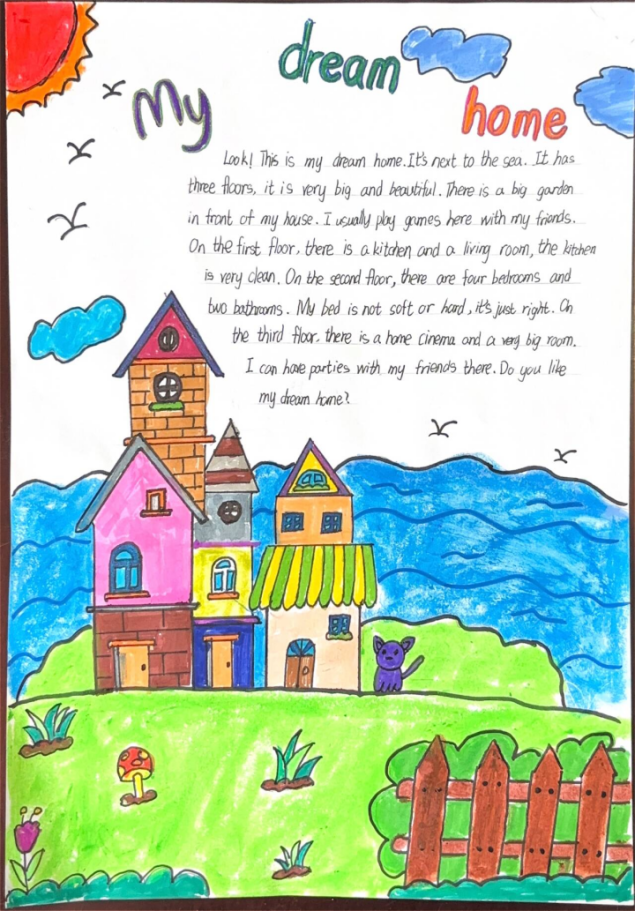 My dream home
Look! This is my dream home. It's next to the sea. It has
three floors, it is very big and beautiful. There is a big garden
in front of my house. I usually play games here with my friends.
On the first floor, there is a kitchen and a living room, the kitchen
is very clean. On the second floor, there are four bedrooms and
two bathrooms. My bed is not soft or hard, it's just right. On
the third floor, there is a home cinema and a very big room.
I can have parties with my friends there. Do you like
my dream home?